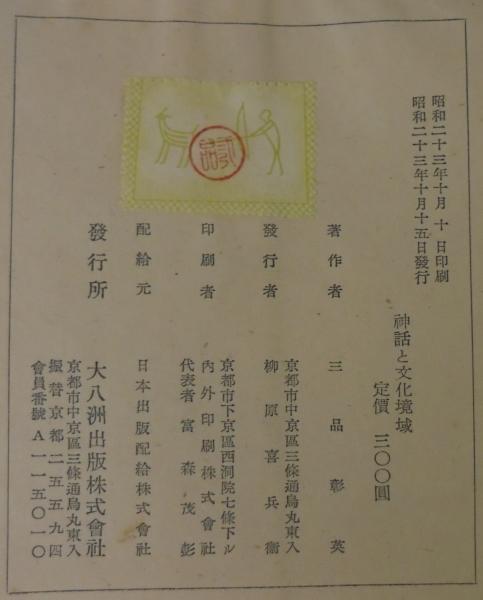 昭和二十三年十月 十 日印刷
昭和二十三年十月十五日發行
神話と文化境域
定價 三〇〇圓
著作者 三品彰英
京都市中京區三條通烏丸東入
發行者 柳原喜兵衞
京都市下京區西洞院七條下ル
印刷者 內外印刷株式會社
代表者 富森茂彭
配給元 日本出版配給株式會社
發行所 大八洲出版株式會社
京都市中京區三條通烏丸東入
振替京都二五五九四
會員番號 A一一五〇一〇